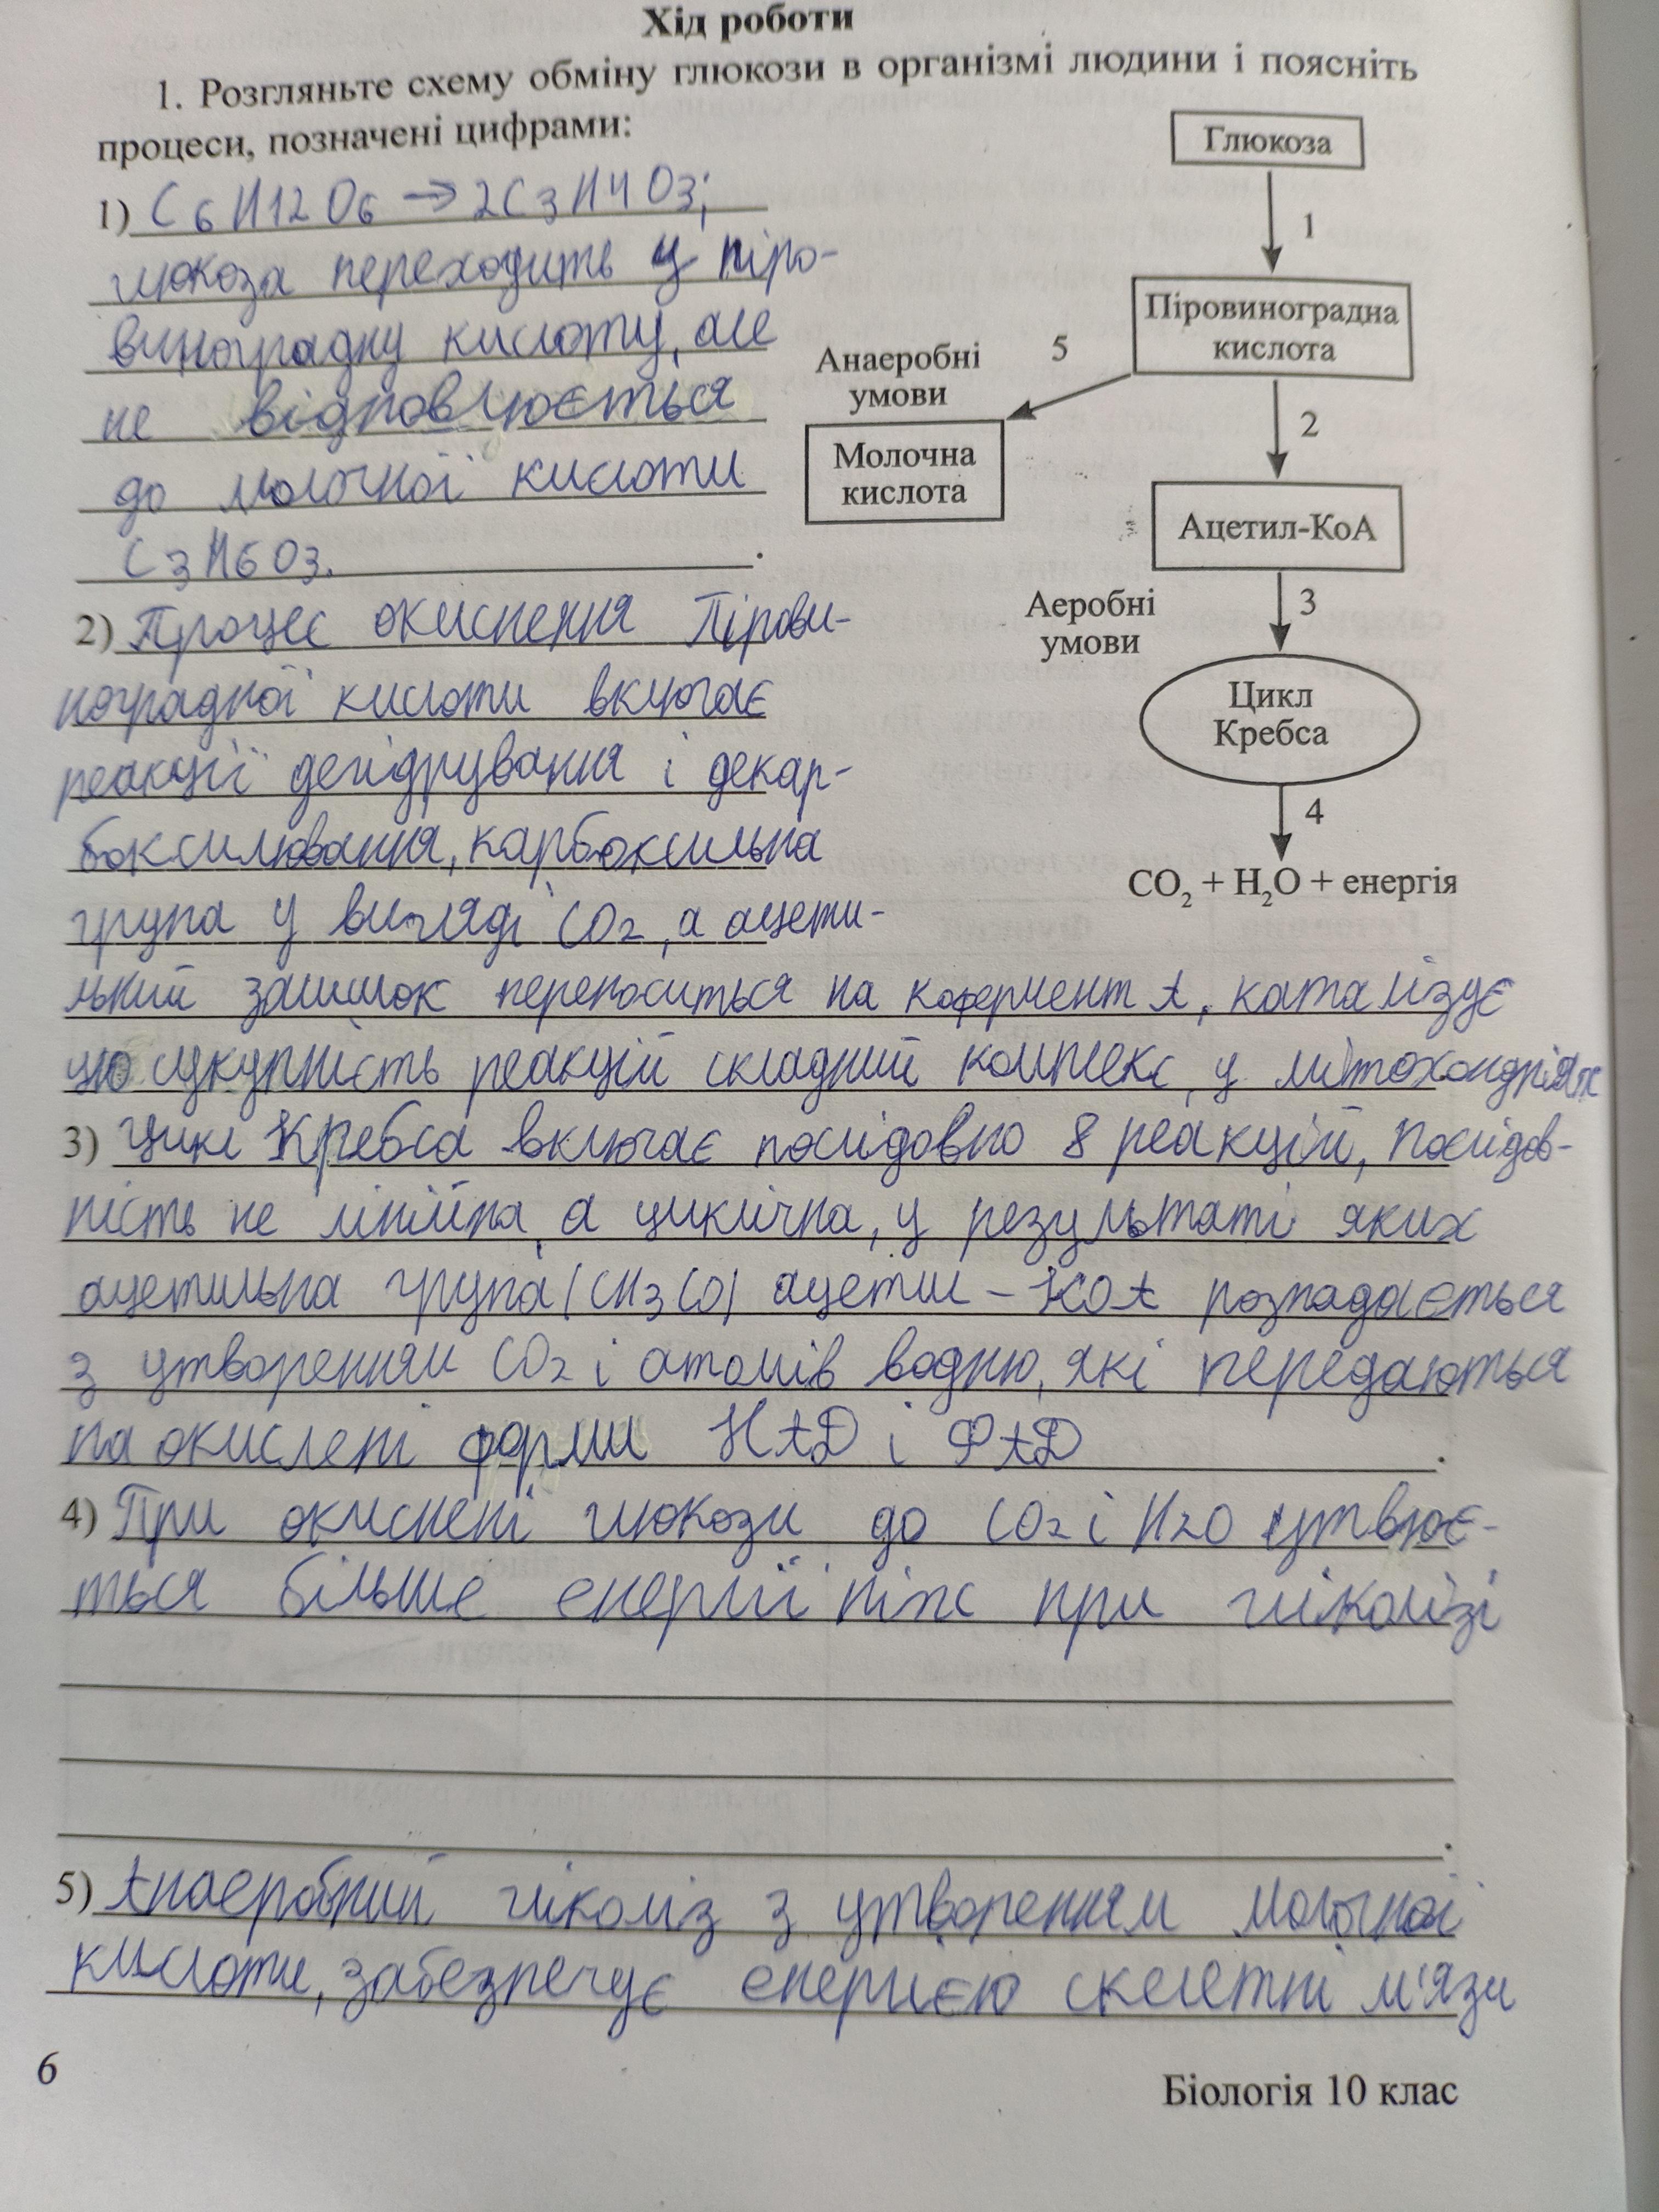 Хід роботи
1. Розгляньте схему обміну глюкози в організмі людини і поясніть
процеси, позначені цифрами:
1) C6H12O6 → 2C3H4O3;
глюкоза переходить у піро-
виноградну кислоту, але
не відновлюється
до молочної кислоти
C3H6O3.
Глюкоза
1
Піровиноградна
кислота
Анаеробні
умови
5
2
Молочна
кислота
Ацетил-КоА
Аеробні
умови
3
Цикл
Кребса
4
CO2 + H2O + енергія
2) Процес окиснення Пірови-
ноградної кислоти включає
реакції дегідрування і декар-
боксилювання, карбоксильна
група у вигляді CO2, а ацети-
льний залишок переноситься на кофермент А, каталізує
цю сукупність реакцій складний комплекс у мітохондріях
3) Цикл Кребса включає послідовно 8 реакцій, Послідов-
ність не лінійна, а циклічна, у результаті яких
ацетильна група (CH3CO) ацетил-КоА розпадається
з утворенням CO2 і атомів водню, які передаються
на окислені форми НАД і ФАД.
4) При окиснені глюкози до CO2 і H2O утвює-
ться більше енергії ніж при гліколізі
5) Анаеробний гліколіз з утворенням молочної
кислоти, забезпечує енергією скелетні м'язи
6
Біологія 10 клас